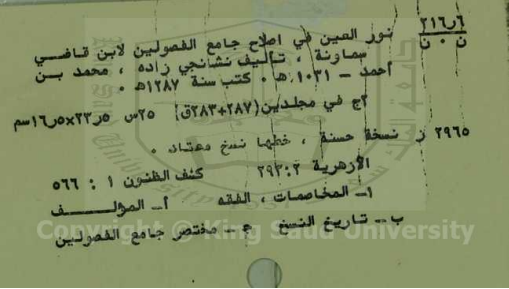 ٢١٦٫٦
ن ٠ ن
نور العين في اصلاح جامع الفصولين لابن قاضي
سماونة ، تأليف نشانجي زاده ، محمد بن
أحمد – ١٠٣١ هـ ٠ كتب سنة ١٢٨٧ هـ ٠
٢ج في مجلدين (٢٨٧+٢٨٣ق) ٢٥س ٢٣٫٥×١٦٫٥سم
٢٩٦٥ ز نسخة حسنة ، خطها نسخ معتاد ٠
الأزهرية ٢:٢٩٣ كشف الظنون ١ : ٥٦٦
١– المخاصمات ، الفقه أ– المؤلف
ب– تاريخ النسخ ج– مختصر جامع الفصولين
Copyright © King Saud University